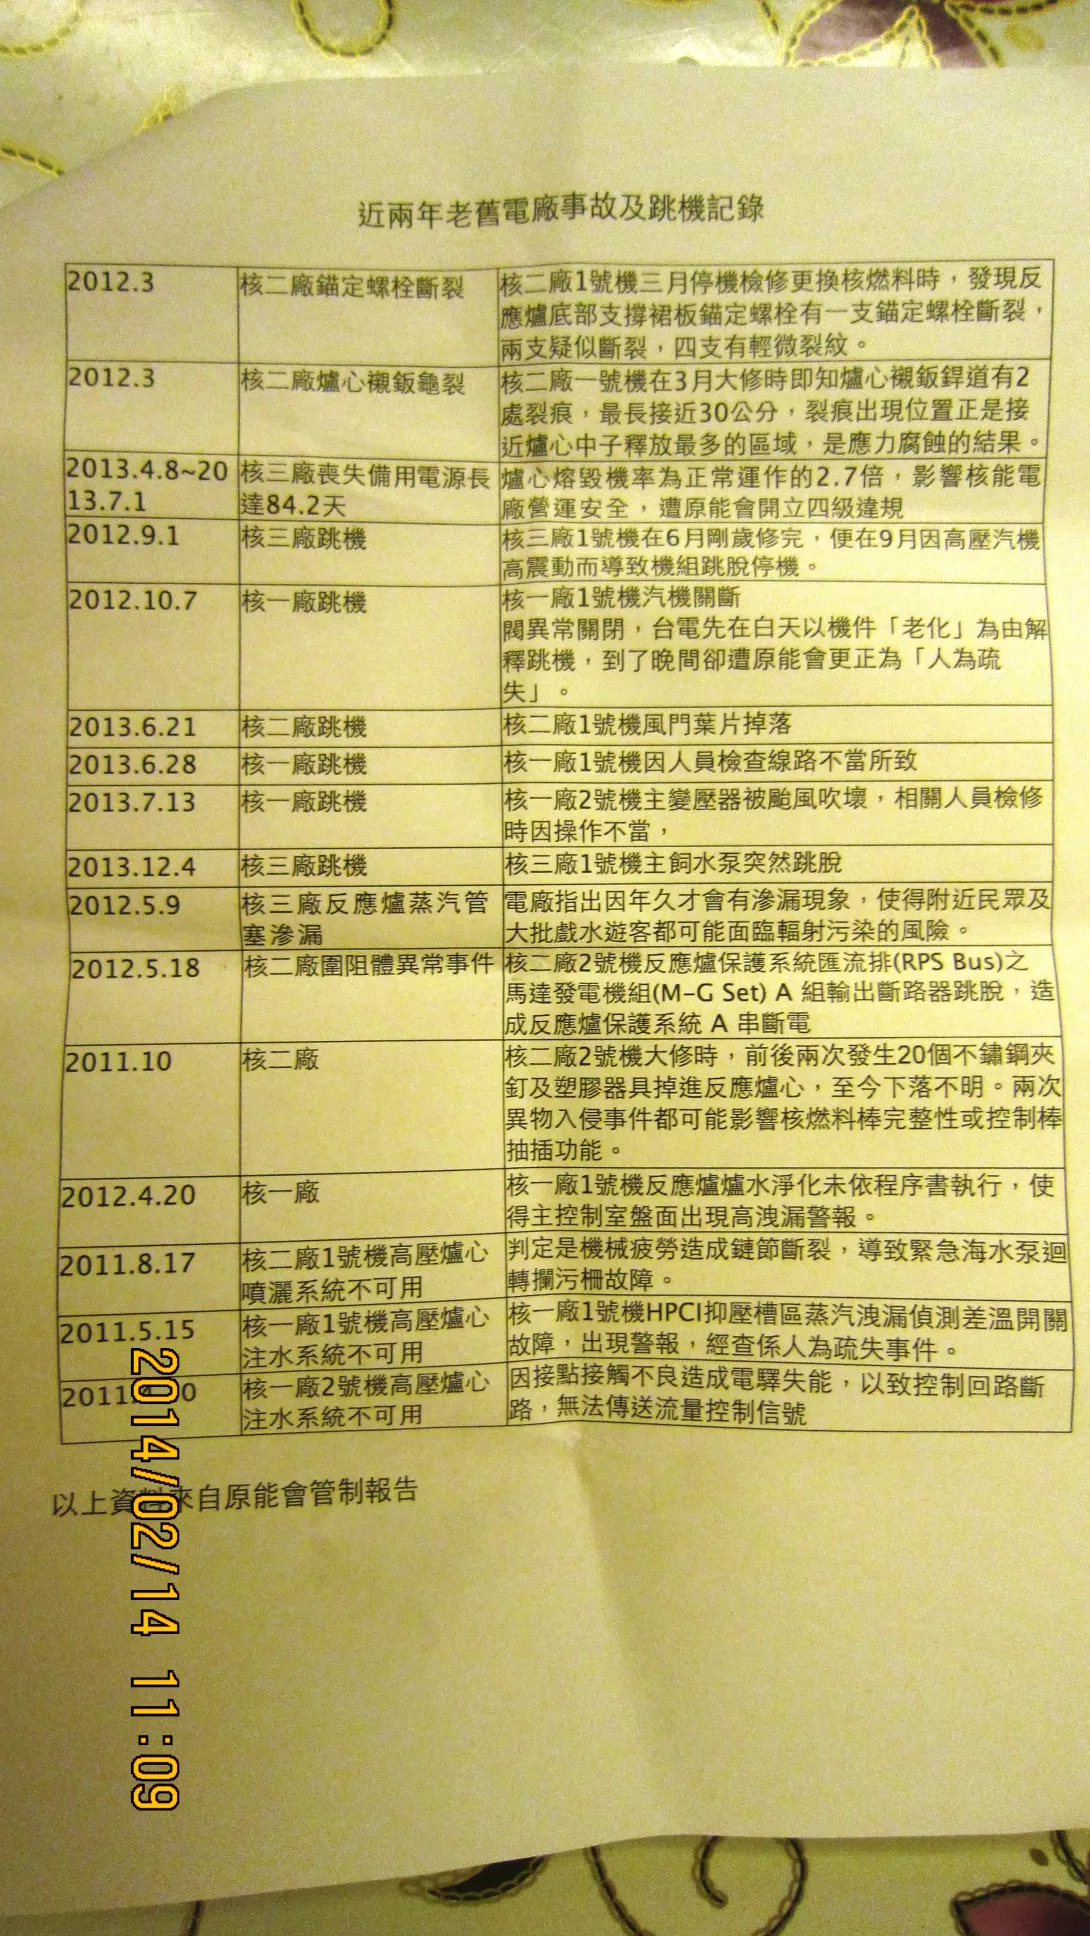 近兩年老舊電廠事故及跳機記錄
2012.3
核二廠錨定螺栓斷裂
核二廠1號機三月停機檢修更換核燃料時，發現反
應爐底部支撐裙板錨定螺栓有一支錨定螺栓斷裂，
兩支疑似斷裂，四支有輕微裂紋。
2012.3
核二廠爐心襯鈑龜裂
核二廠一號機在3月大修時即知爐心襯鈑銲道有2
處裂痕，最長接近30公分，裂痕出現位置正是接
近爐心中子釋放最多的區域，是應力腐蝕的結果。
2013.4.8~20
13.7.1
核三廠喪失備用電源長
達84.2天
爐心熔毀機率為正常運作的2.7倍，影響核能電
廠營運安全，遭原能會開立四級違規
2012.9.1
核三廠跳機
核三廠1號機在6月剛歲修完，便在9月因高壓汽機
高震動而導致機組跳脫停機。
2012.10.7
核一廠跳機
核一廠1號機汽機關斷
閥異常關閉，台電先在白天以機件「老化」為由解
釋跳機，到了晚間卻遭原能會更正為「人為疏
失」。
2013.6.21
核二廠跳機
核二廠1號機風門葉片掉落
2013.6.28
核一廠跳機
核一廠1號機因人員檢查線路不當所致
2013.7.13
核一廠跳機
核一廠2號機主變壓器被颱風吹壞，相關人員檢修
時因操作不當，
2013.12.4
核三廠跳機
核三廠1號機主飼水泵突然跳脫
2012.5.9
核三廠反應爐蒸汽管
塞滲漏
電廠指出因年久才會有滲漏現象，使得附近民眾及
大批戲水遊客都可能面臨輻射污染的風險。
2012.5.18
核二廠圍阻體異常事件
核二廠2號機反應爐保護系統匯流排(RPS Bus)之
馬達發電機組(M-G Set) A 組輸出斷路器跳脫，造
成反應爐保護系統 A 串斷電
2011.10
核二廠
核二廠2號機大修時，前後兩次發生20個不鏽鋼夾
釘及塑膠器具掉進反應爐心，至今下落不明。兩次
異物入侵事件都可能影響核燃料棒完整性或控制棒
抽插功能。
2012.4.20
核一廠
核一廠1號機反應爐爐水淨化未依程序書執行，使
得主控制室盤面出現高洩漏警報。
2011.8.17
核二廠1號機高壓爐心
噴灑系統不可用
判定是機械疲勞造成鏈節斷裂，導致緊急海水泵迴
轉攔污柵故障。
2011.5.15
核一廠1號機高壓爐心
注水系統不可用
核一廠1號機HPCI抑壓槽區蒸汽洩漏偵測差溫開關
故障，出現警報，經查係人為疏失事件。
核一廠2號機高壓爐心
注水系統不可用
因接點接觸不良造成電驛失能，以致控制回路斷
路，無法傳送流量控制信號
以上資料來自原能會管制報告
2014/02/14 11:09